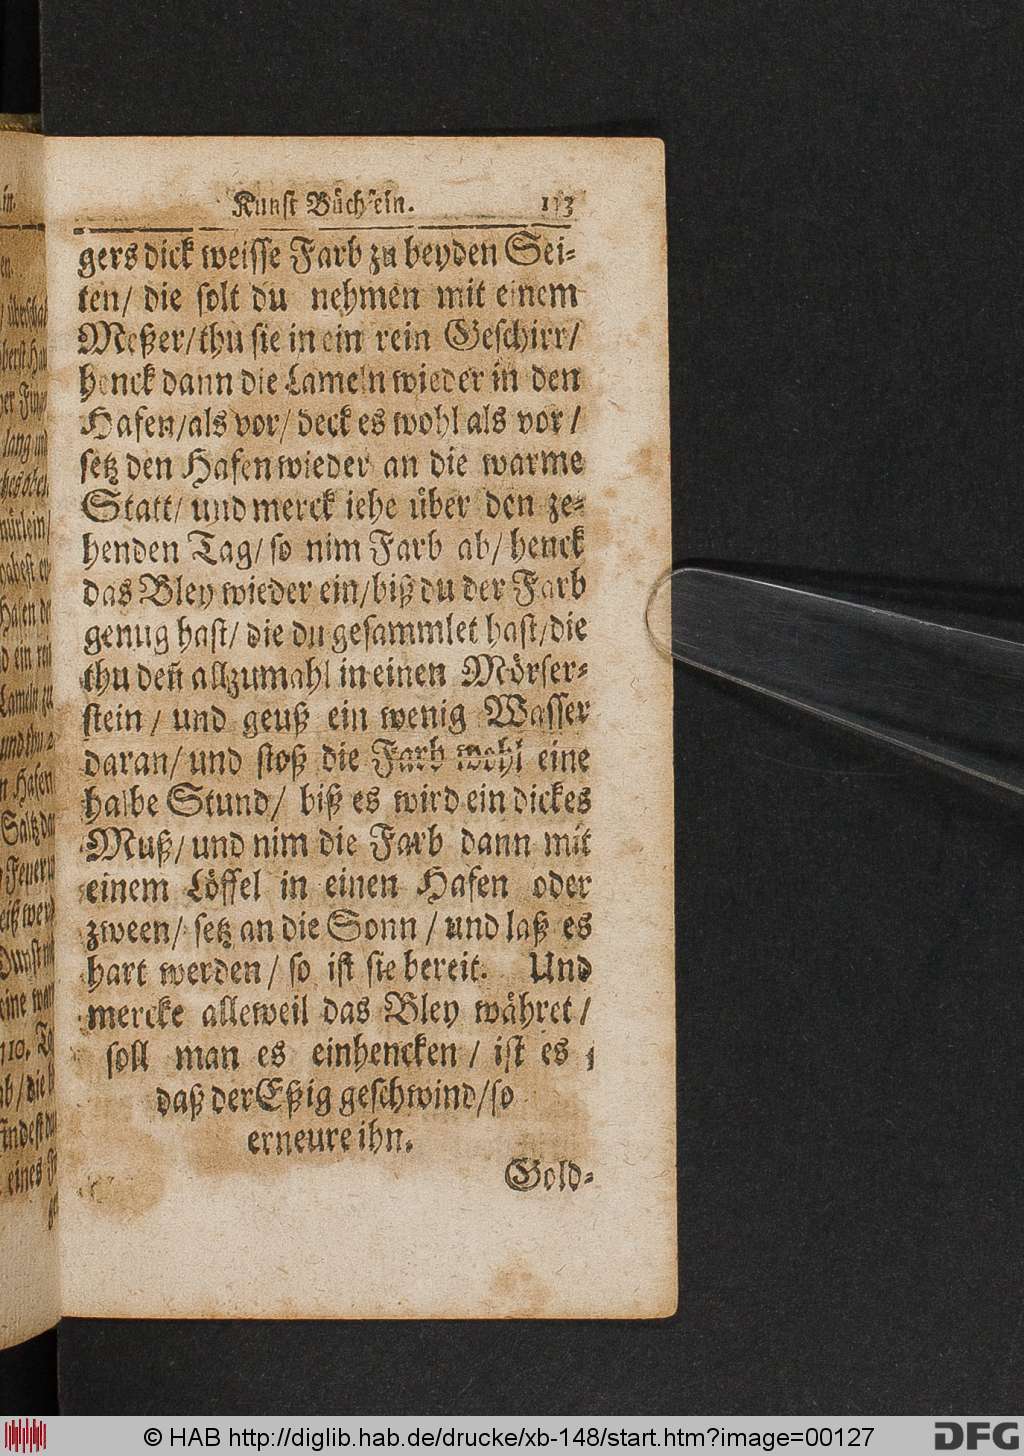 Kunst Büchlein. 113
gers dick weisse Farb zu beyden Sei-
ten/ die solt du nehmen mit einem
Meßer/ thu sie in ein rein Geschirr/
henck dann die Lameln wieder in den
Hafen/ als vor/ deck es wohl als vor/
setz den Hafen wieder an die warme
Statt/ und merck iehe über den ze-
henden Tag/ so nim Farb ab/ henck
das Bley wieder ein/ biß du der Farb
genug hast/ die du gesammlet hast/ die
thu deñ allzumahl in einen Mörser-
stein/ und geuß ein wenig Wasser
daran/ und stoß die Farb wohl eine
halbe Stund/ biß es wird ein dickes
Muß/ und nim die Farb dann mit
einem Löffel in einen Hafen oder
zween/ setz an die Sonn/ und laß es
hart werden/ so ist sie bereit. Und
mercke alleweil das Bley währet/
soll man es einhencken/ ist es
daß der Eßig geschwind/ so
erneure ihn.
Gold-
© HAB http://diglib.hab.de/drucke/xb-148/start.htm?image=00127
DFG